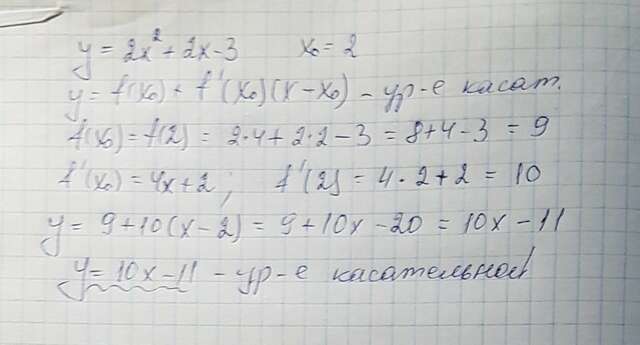 y = 2x² + 2x - 3 x₀ = 2
y = f(x₀) + f'(x₀)(x - x₀) - ур-е касат.
f(x₀) = f(2) = 2·4 + 2·2 - 3 = 8 + 4 - 3 = 9
f'(x₀) = 4x + 2; f'(2) = 4·2 + 2 = 10
y = 9 + 10(x - 2) = 9 + 10x - 20 = 10x - 11
y = 10x - 11 - ур-е касательной